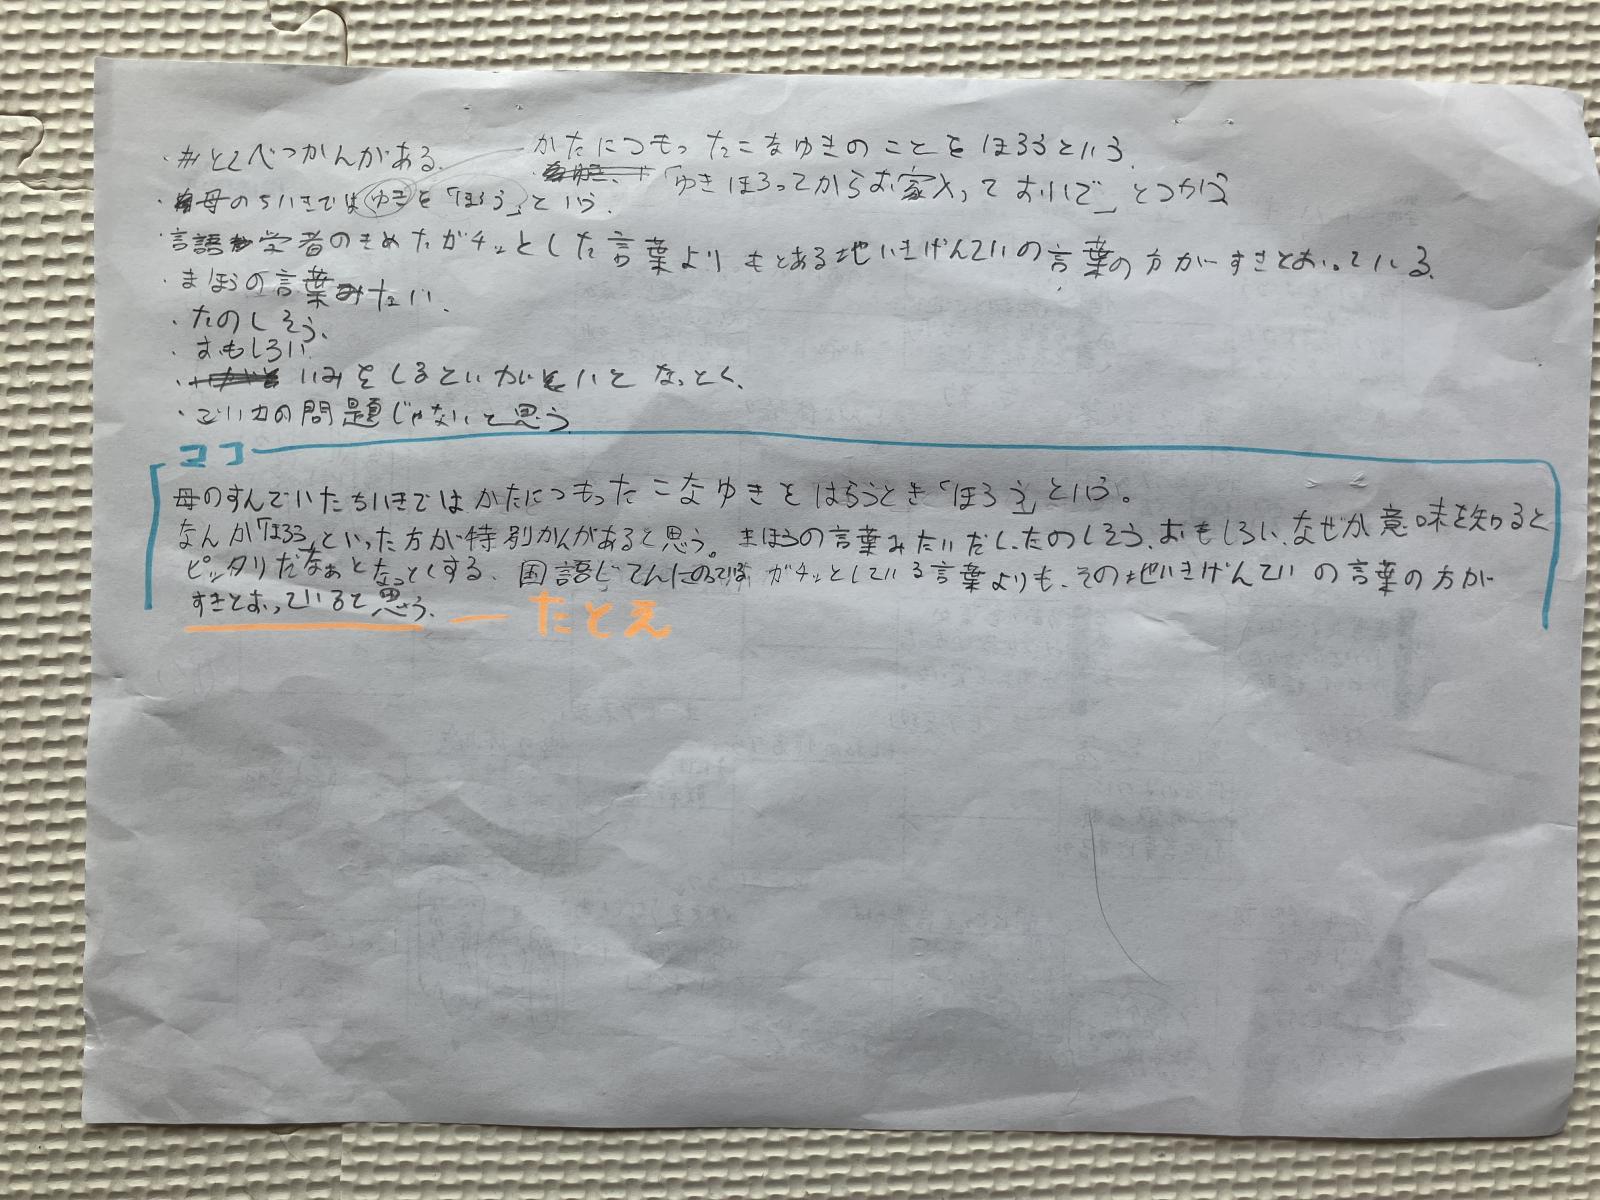 ・とくべつかんがある。
かたにつもったこなゆきのことをほろうという。
・母のちいきではゆきを「ほろう」という。
「ゆきほろってからお家入っておいで」とつかう
・言語学者のきめたガチッとした言葉よりもとある地いきげんていの言葉の方がすきとおっている。
・まほうの言葉みたい。
・たのしそう。
・おもしろい
・いみをしるといがいとなっとく。
・ごい力の問題じゃないと思う
ココ
母のすんでいたちいきではかたにつもったこなゆきをはらうとき「ほろう」という。
なんか「ほろう」といった方が特別かんがあると思う。まほうの言葉みたいだし、たのしそう、おもしろい、なぜか意味を知ると
ピッタリだなぁとなっとくする。国語じてんにのっているガチッとしている言葉よりも、その地いきげんていの言葉の方が
すきとおっていると思う。
たとえ